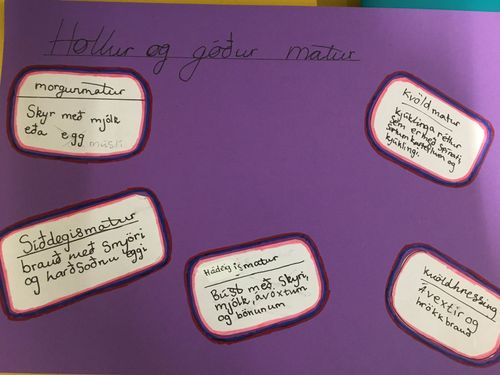 Hollur og góður matur
morgunmatur
Skyr með mjólk
eða egg músli
Kvöldmatur
kjúklinga réttur
sem er með spínati,
sætum kartöflum og
kjúklingi.
Síðdegismatur
brauð með smjöri
og harðsoðnu eggi
Hádegismatur
Búst með skyri,
mjólk, ávöxtum
og bönunum
kvöldhressing
Ávextir og
hrökkbrauð